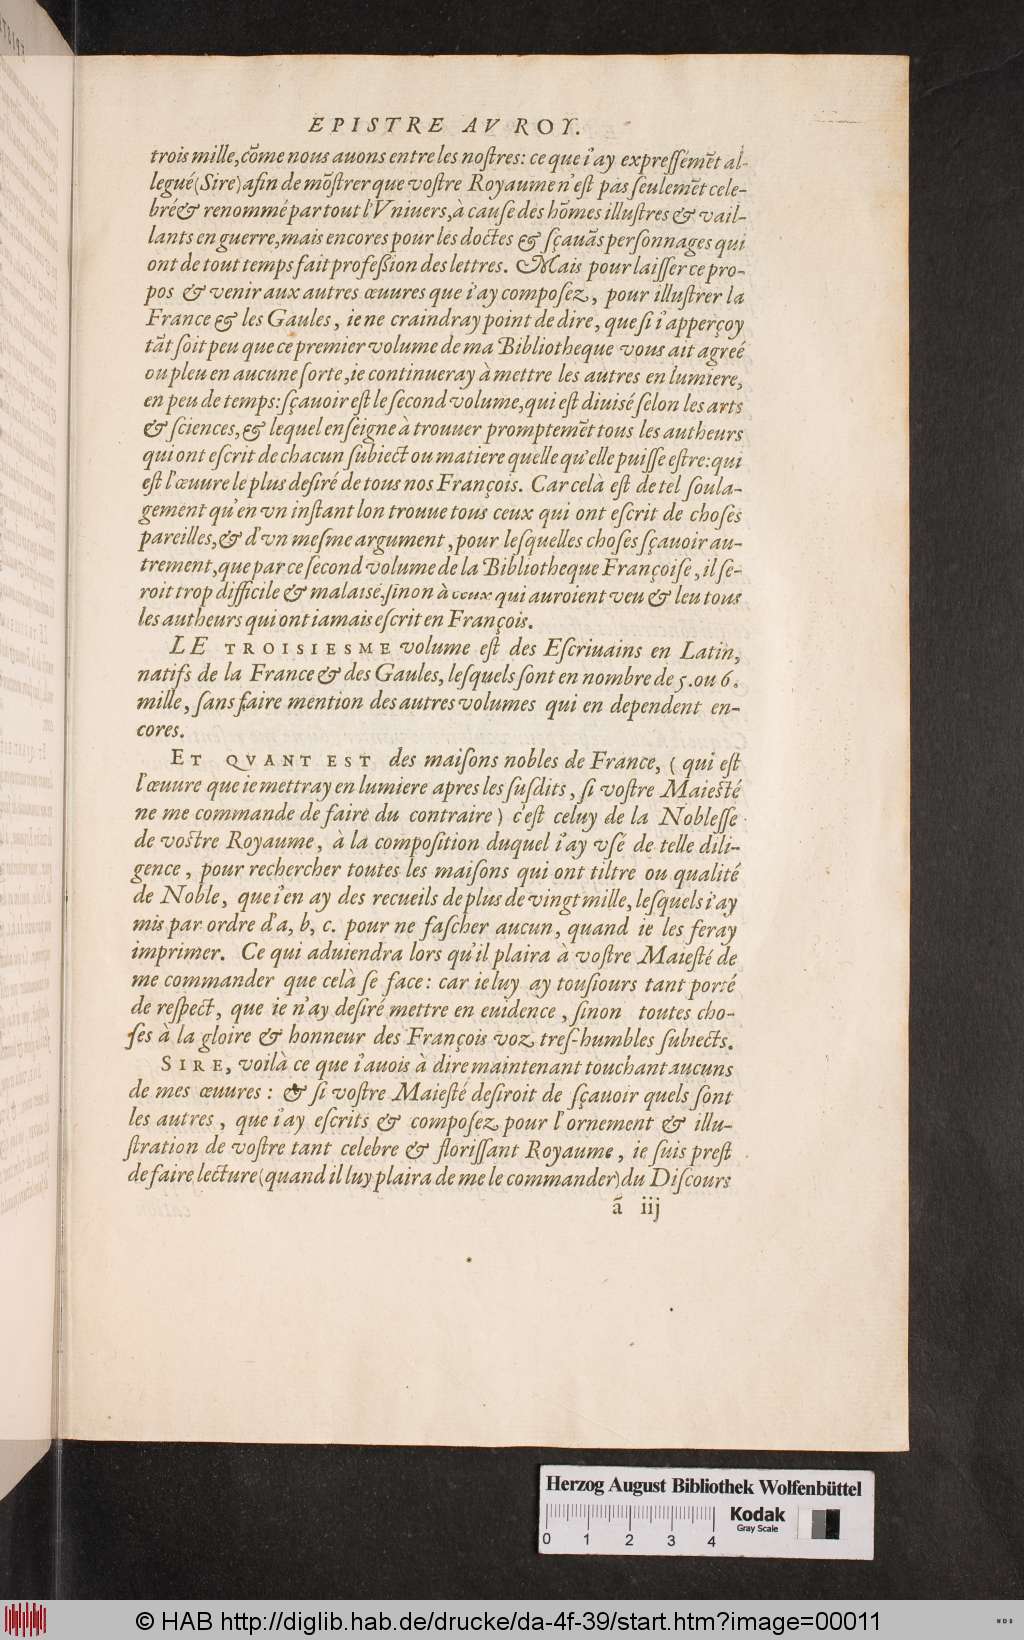 EPISTRE AV ROY.
trois mille, cõme nous auons entre les noſtres: ce que i'ay expreſſémẽt al-
legué (Sire) afin de mõſtrer que voſtre Royaume n'eſt pas ſeulemẽt cele-
bré & renommé par tout l'Vniuers, à cauſe des hõmes illuſtres & vail-
lants en guerre, mais encores pour les doctes & ſçauãs perſonnages qui
ont de tout temps fait profeſsion des lettres. Mais pour laiſſer ce pro-
pos & venir aux autres œuures que i'ay compoſez, pour illuſtrer la
France & les Gaules, ie ne craindray point de dire, que ſi i'apperçoy
tãt ſoit peu que ce premier volume de ma Bibliotheque vous ait agreé
ou pleu en aucune ſorte, ie continueray à mettre les autres en lumiere,
en peu de temps: ſçauoir eſt le ſecond volume, qui eſt diuisé ſelon les arts
& ſciences, & lequel enſeigne à trouuer promptemẽt tous les autheurs
qui ont eſcrit de chacun ſubiect ou matiere quelle qu'elle puiſſe eſtre: qui
eſt l'œuure le plus deſiré de tous nos François. Car celà eſt de tel ſoula-
gement qu'en vn inſtant lon trouue tous ceux qui ont eſcrit de choſes
pareilles, & d'vn meſme argument, pour leſquelles choſes ſçauoir au-
trement, que par ce ſecond volume de la Bibliotheque Françoiſe, il ſe-
roit trop difficile & malaisé, ſinon à ceux qui auroient veu & leu tous
les autheurs qui ont iamais eſcrit en François.
LE TROISIESME volume eſt des Eſcriuains en Latin,
natifs de la France & des Gaules, leſquels ſont en nombre de 5. ou 6.
mille, ſans faire mention des autres volumes qui en dependent en-
cores.
ET QVANT EST des maiſons nobles de France, ( qui eſt
l'œuure que ie mettray en lumiere apres les ſuſdits, ſi voſtre Maieſté
ne me commande de faire du contraire) c'eſt celuy de la Nobleſſe
de voſtre Royaume, à la compoſition duquel i'ay vſé de telle dili-
gence, pour rechercher toutes les maiſons qui ont tiltre ou qualité
de Noble, que i'en ay des recueils de plus de vingt mille, leſquels i'ay
mis par ordre d'a, b, c. pour ne faſcher aucun, quand ie les feray
imprimer. Ce qui aduiendra lors qu'il plaira à voſtre Maieſté de
me commander que celà ſe face: car ie luy ay touſiours tant porté
de reſpect, que ie n'ay deſiré mettre en euidence, ſinon toutes cho-
ſes à la gloire & honneur des François voz treſ-humbles ſubiects.
SIRE, voilà ce que i'auois à dire maintenant touchant aucuns
de mes œuures: & ſi voſtre Maieſté deſiroit de ſçauoir quels ſont
les autres, que i'ay eſcrits & compoſez pour l'ornement & illu-
ſtration de voſtre tant celebre & floriſſant Royaume, ie ſuis preſt
de faire lecture (quand il luy plaira de me le commander) du Diſcours
ã iij
Herzog August Bibliothek Wolfenbüttel
Kodak
Gray Scale
0 1 2 3 4
© HAB http://diglib.hab.de/drucke/da-4f-39/start.htm?image=00011